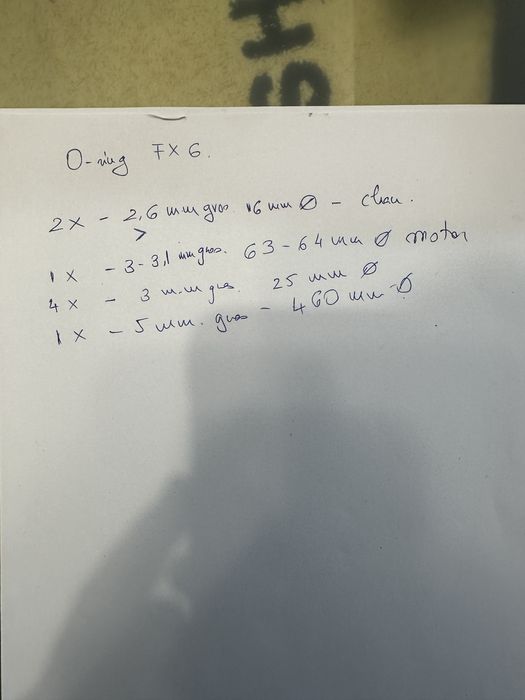 HS
O-ring FX 6.
2x - 2,6 mm gros 16 mm Ø - chau.
>
1x - 3-3,1 mm gros. 63-64 mm Ø motor
4x - 3 mm gros. 25 mm Ø
1x - 5 mm. gros - 460 mm Ø